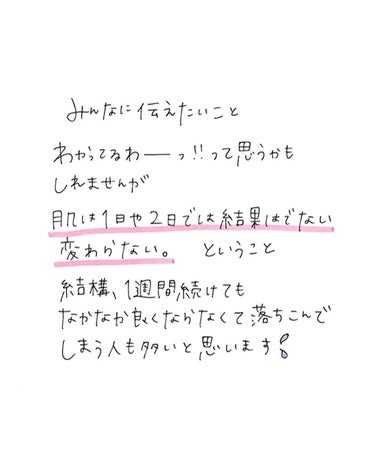 みんなに伝えたいこと
わかってるわーっ!!って思うかも
しれませんが
肌は1日や2日では結果はでない
変わらない。 ということ
結構、1週間続けても
なかなか良くならなくて落ちこんで
しまう人も多いと思います